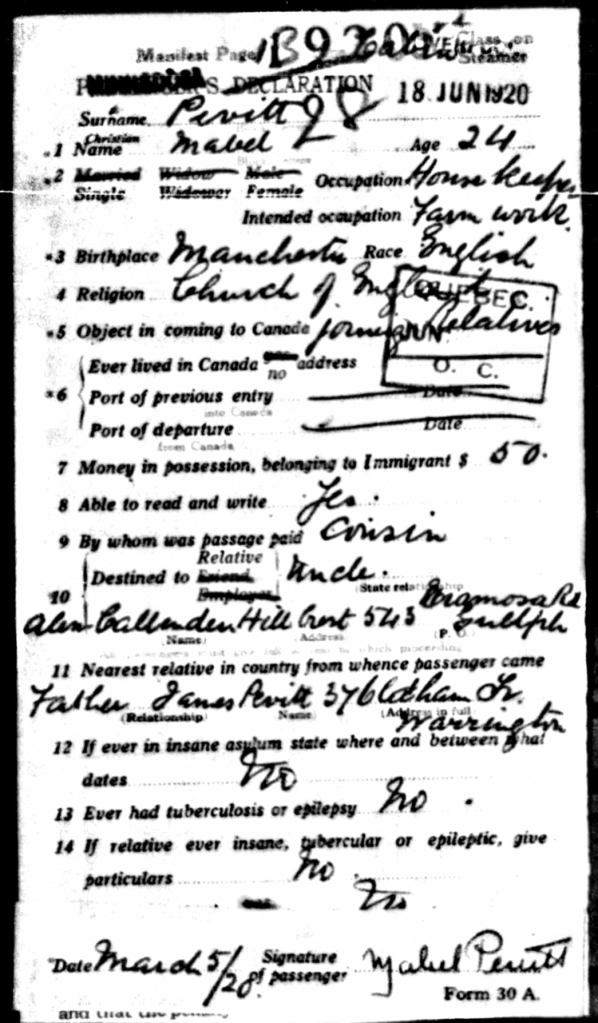 Manifest Page 1B930 Cabin Class on
Steamer
PASSENGER'S DECLARATION 18 JUN 1920
Surname Pevitt 98
1 Christian Name Mabel Age 24
2 Married Widow Male Occupation House keeper
Single Widower Female
Intended occupation Farm work.
*3 Birthplace Manchester Race English
4 Religion Church of England
QUEBEC.
*5 Object in coming to Canada joining Relatives
JUN
Ever lived in Canada no address
O. C.
*6 Port of previous entry Date
into Canada
Port of departure Date
from Canada
7 Money in possession, belonging to Immigrant $ 50.
8 Able to read and write Yes.
9 By whom was passage paid Cousin
Relative
10 Destined to Friend Uncle.
Employer State relationship
Alen Callenden Hill Crest 543 Eramosa Rd
Guelph
Name Address (P. O.
11 Nearest relative in country from whence passenger came
Father James Pevitt 376 Oldham St.
Warrington
(Relationship) Name (Address in full
12 If ever in insane asylum state where and between what
dates No
13 Ever had tuberculosis or epilepsy No.
14 If relative ever insane, tubercular or epileptic, give
particulars No.
No
Date March 5/20. Signature of passenger Mabel Pevitt
Form 30 A.
and that the